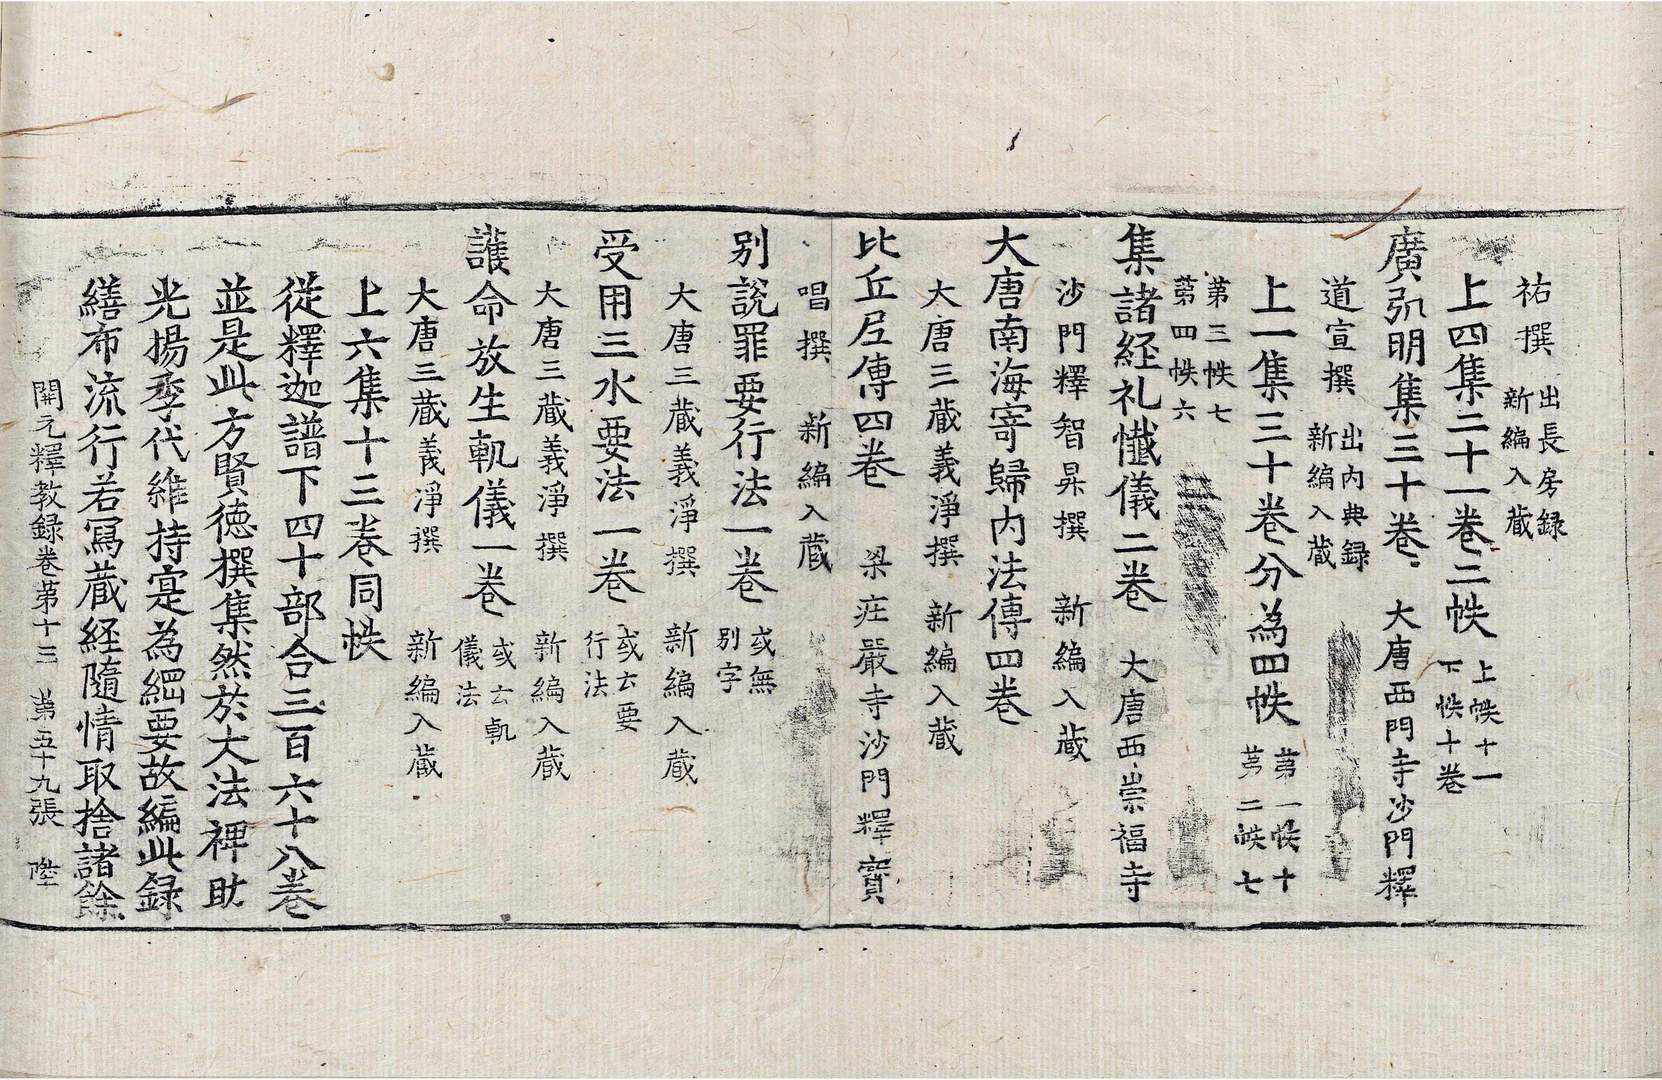 祐撰出長房録新編入藏
上四集二十一卷二帙上帙十一卷下帙十卷
廣弘明集三十卷大唐西門寺沙門釋
道宣撰出内典録新編入藏
上一集三十卷分為四帙第一帙十第二帙七
第三帙七第四帙六
集諸経礼懺儀二卷大唐西崇福寺
沙門釋智昇撰新編入藏
大唐南海寄歸内法傳四卷
大唐三藏義淨撰新編入藏
比丘尼傳四卷梁庄嚴寺沙門釋寶
唱撰新編入藏
别說罪要行法一卷或無别字
大唐三藏義淨撰新編入藏
受用三水要法一卷或云要行法
大唐三藏義淨撰新編入藏
護命放生軌儀一卷或云軌儀法
大唐三藏義淨撰新編入藏
上六集十三卷同帙
從釋迦譜下四十部合三百六十八卷
並是此方賢德撰集然於大法裨助
光揚季代維持寔為綱要故編此録
繕布流行若寫藏経隨情取捨諸餘
開元釋教録卷第十三 第五十九張 陸